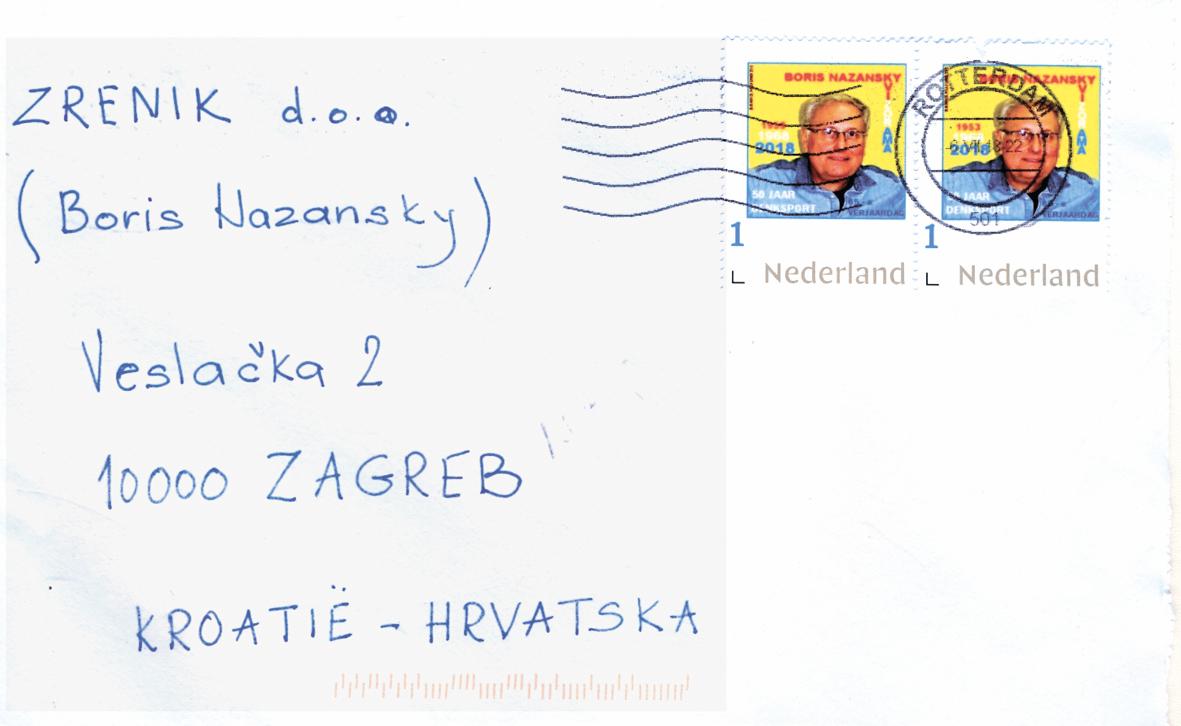 ZRENIK d.o.o.
(Boris Nazansky)
Veslačka 2
10000 ZAGREB
KROATIË - HRVATSKA
BORIS NAZANSKY
VIZORAMA
1953
1968
2018
50 JAAR
DENKSPORT
VERJAARDAG
1
Nederland
BORIS NAZANSKY
1953
1968
2018
50 JAAR
DENKSPORT
VERJAARDAG
1
Nederland
ROTTERDAM
561